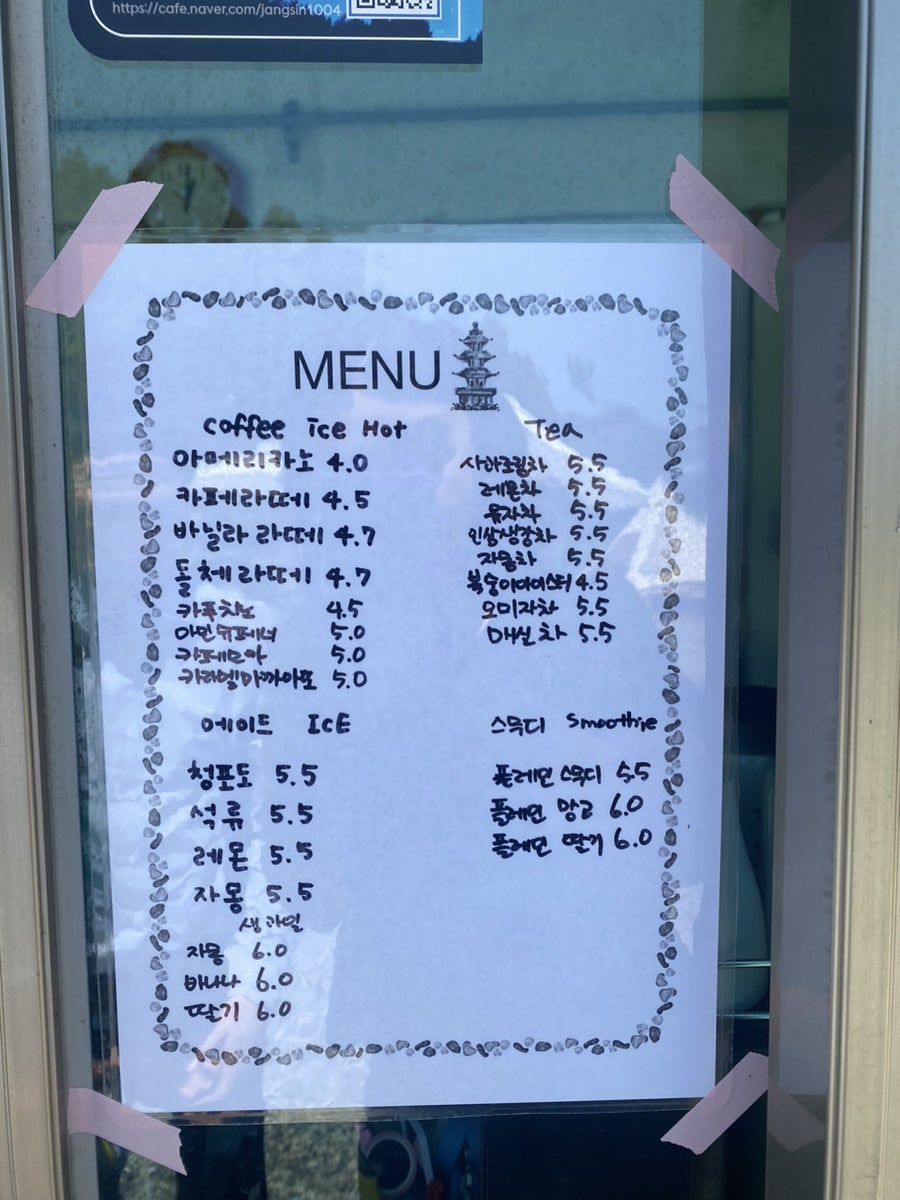 https://cafe.naver.com/jangsin1004
MENU
Coffee ice Hot
아메리카노 4.0
카페라떼 4.5
바닐라 라떼 4.7
돌체라떼 4.7
카푸치노 4.5
아인슈페너 5.0
카페모카 5.0
카라멜마끼아또 5.0
Tea
5.5
레몬차 5.5
유자차 5.5
인삼생강차 5.5
자몽차 5.5
복숭아아이스티 4.5
오미자차 5.5
매실차 5.5
에이드 ICE
청포도 5.5
석류 5.5
레몬 5.5
자몽 5.5
생과일
자몽 6.0
바나나 6.0
딸기 6.0
스무디 Smoothie
플레인 스무디 5.5
플레인 망고 6.0
플레인 딸기 6.0